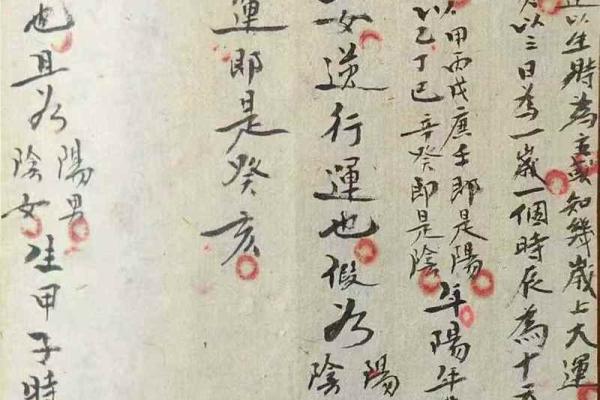 以生時為主或知幾歲上大運
以三日為一歲一個時辰為十
以甲丙戊庚壬即是陽
以乙丁巳辛癸即是陰
年陽年
女逆行運也假如
陽
陰
運即是癸亥
也且如
陽男
陰女
生甲子時